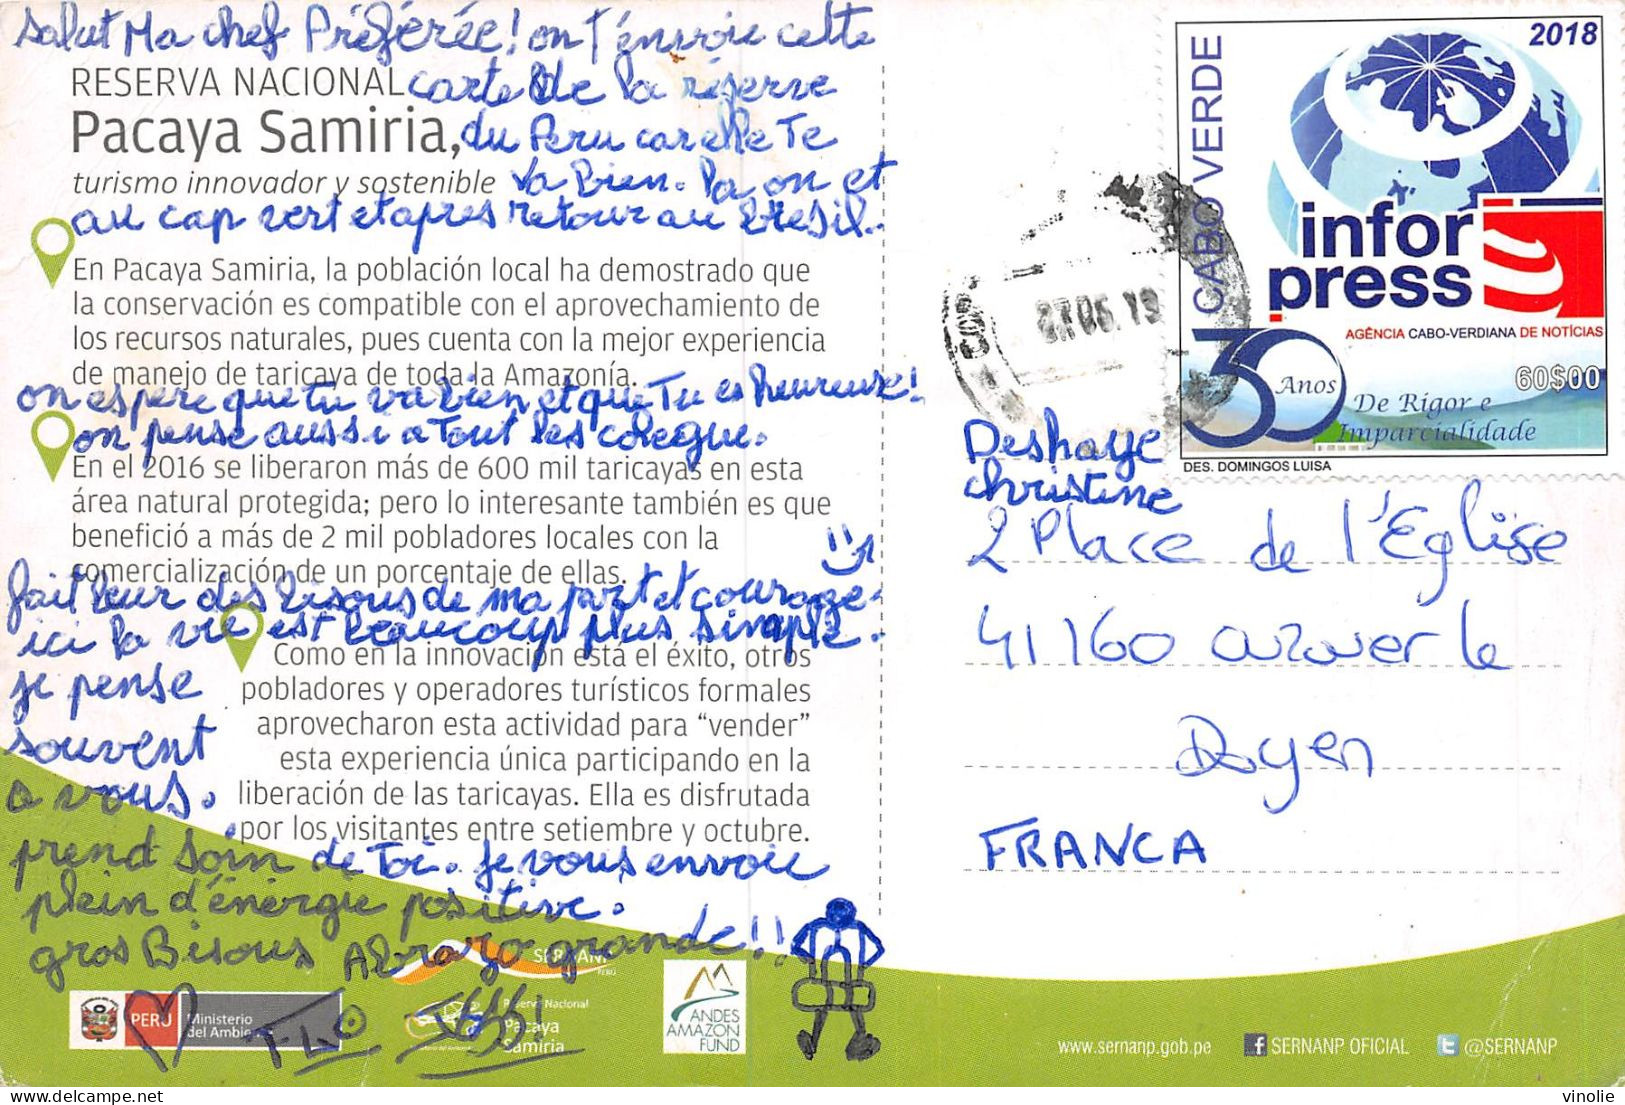 salut Ma chef Préférée! on t'envoie cette
RESERVA NACIONAL carte de la réserve
Pacaya Samiria, du Peru car elle Te
turismo innovador y sostenible va Bien. la on et
au cap vert et apres retour au bresil..
En Pacaya Samiria, la población local ha demostrado que
la conservación es compatible con el aprovechamiento de
los recursos naturales, pues cuenta con la mejor experiencia
de manejo de taricaya de toda la Amazonía.
on espere que tu va bien et que Tu es heureuse!
on pense aussi a Tout les colegue.
En el 2016 se liberaron más de 600 mil taricayas en esta
área natural protegida; pero lo interesante también es que
benefició a más de 2 mil pobladores locales con la
comercialización de un porcentaje de ellas.
fait leur des bisous de ma part et courage.
ici la vie est beaucoup plus simple.
Como en la innovación está el éxito, otros
je pense
pobladores y operadores turísticos formales
aprovecharon esta actividad para “vender”
souvent
esta experiencia única participando en la
a vous.
liberación de las taricayas. Ella es disfrutada
por los visitantes entre setiembre y octubre.
prend soin de Toi. je vous envoie
plein d'énergie positive.
gros Bisous Abrazo grande!!
SERNANP
PERÚ
PERÚ
Ministerio
del Ambiente
Reserva Nacional
Pacaya
Samiria
ANDES
AMAZON
FUND
2018
CABO VERDE
infor
press
AGÊNCIA CABO-VERDIANA DE NOTÍCIAS
30
Anos
60$00
De Rigor e
Imparcialidade
DES. DOMINGOS LUISA
Deshaye
christine
2 Place de l'Eglise
41160
FRANCA
www.sernanp.gob.pe
SERNANP OFICIAL
@SERNANP
vinolie